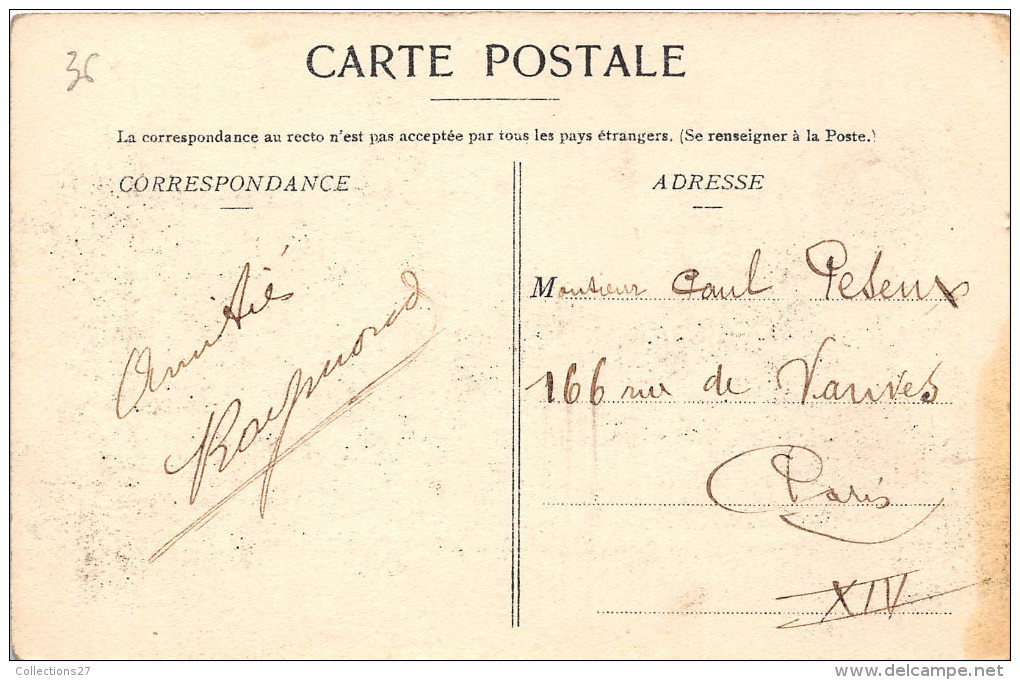 36
CARTE POSTALE
La correspondance au recto n'est pas acceptée par tous les pays étrangers. (Se renseigner à la Poste.)
CORRESPONDANCE
Amitiés
Raymond
ADRESSE
Monsieur Paul Peseux
166 rue de Vanves
Paris
XIV
Collections27
www.delcampe.net